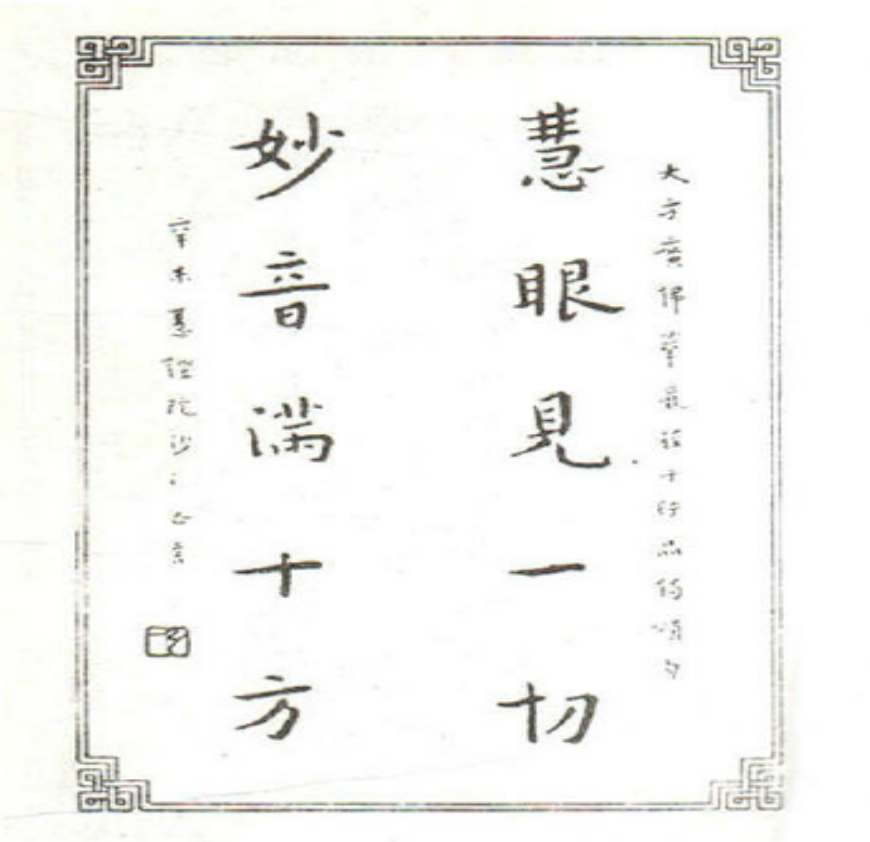 大方廣佛華嚴經十行品偈頌句
慧眼見一切
妙音滿十方
辛未
院沙門
書